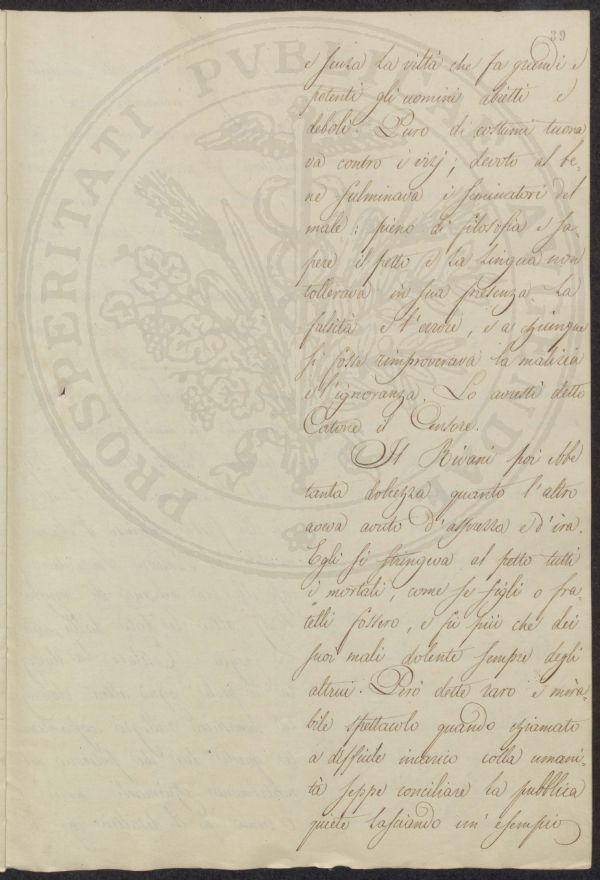 39
e senza la viltà che fa grandi e
potenti gli uomini abietti e
deboli. Puro di costumi tuona
va contro i vizj; devoto al be-
ne fulminava i seminatori del
male: pieno di filosofia e sa-
pere il petto e la lingua non
tollerava in sua presenza la
falsità e l'errore, e a chiunque
si fosse rimproverava la malizia
e l'ignoranza. Lo avresti detto
Catone il Censore.
Il Rivani poi ebbe
tanta dolcezza quanto l'altro
aveva avuto d'asprezza e d'ira.
Egli si stringeva al petto tutti
i mortali, come se figli o fra-
telli fossero, e fu più che dei
suoi mali dolente sempre degli
altrui. Però dette raro e mira-
bile spettacolo quando chiamato
a difficile incarico colla umani-
tà seppe conciliare la pubblica
quiete lasciando un' esempio
PROSPERITATI PUBLICAE AUGENDAE